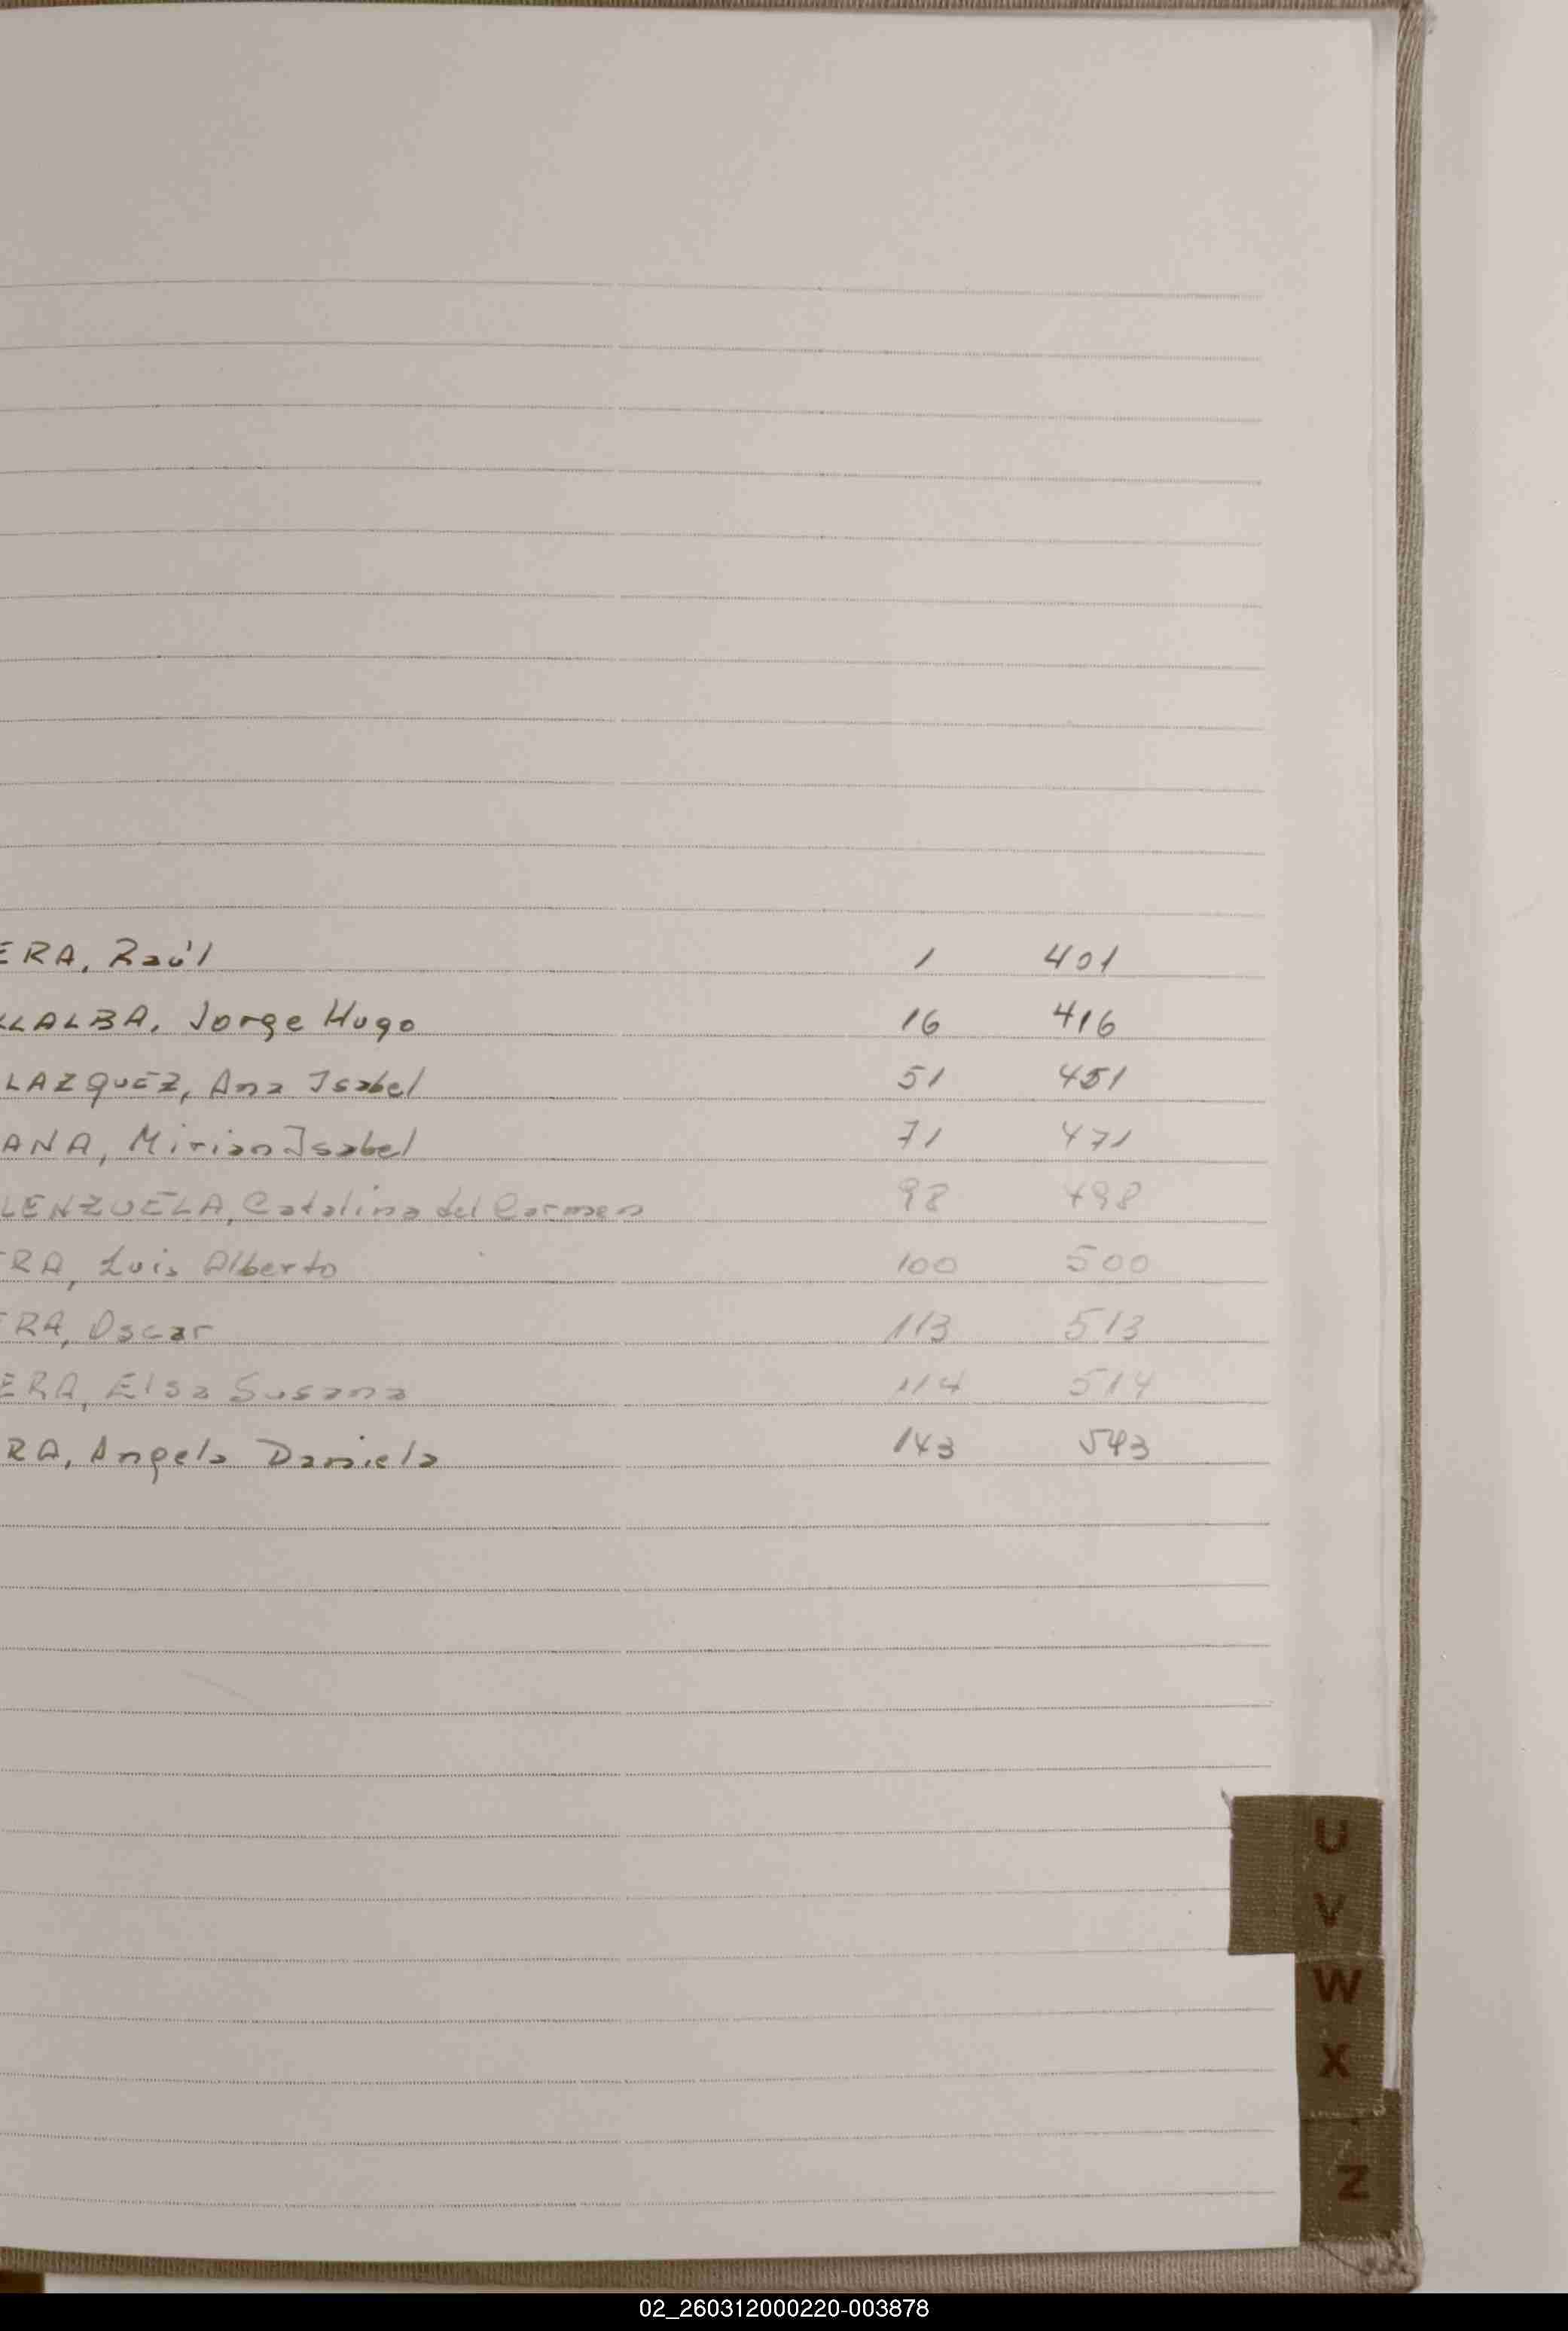 ERA, Raúl 1 401
LLALBA, Jorge Hugo 16 416
LAZQUEZ, Ana Isabel 51 451
ANA, Mirian Isabel 71 471
LENZUELA, Catalina del Carmen 98 498
RA, Luis Alberto 100 500
RA, Oscar 113 513
ERA, Elsa Susana 114 514
RA, Angela Daniela 143 543
U
V
W
X
Z
02_260312000220-003878